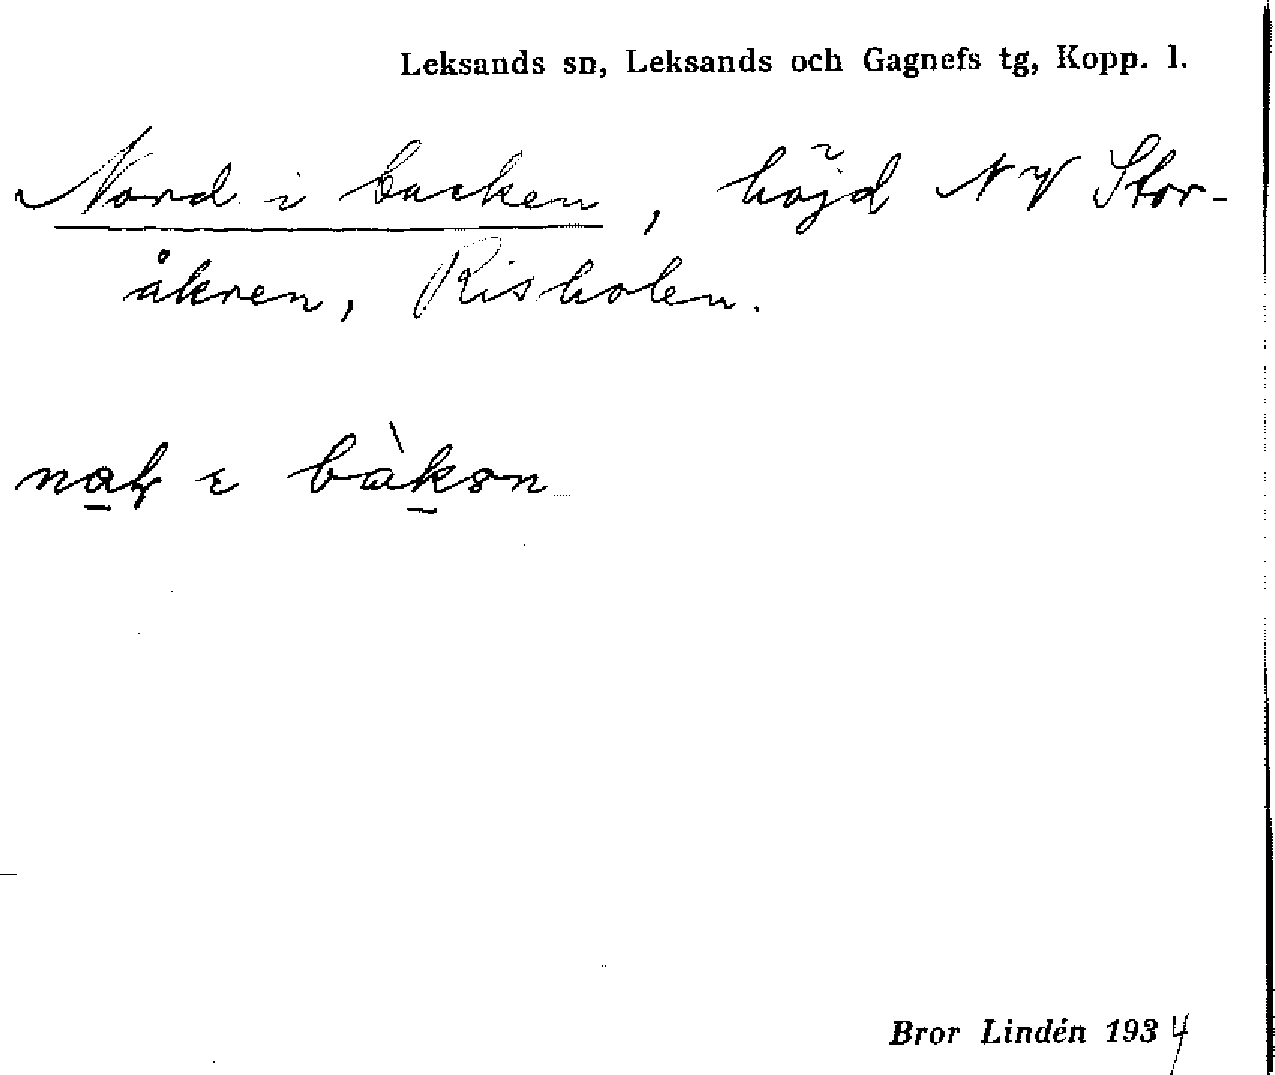 Leksands sn, Leksands och Gagnefs tg, Kopp. l.
Nord i backen, höjd NV Stor-
åkren, Risholen.
bàkən
Bror Lindén 1934